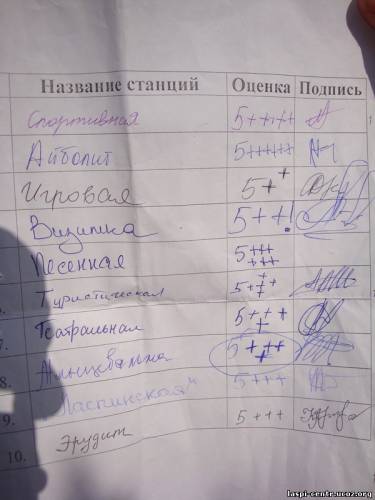 Название станций Оценка Подпись
Спортивная 5+++++
Айболит 5+++++
Игровая 5++
Визитка 5++!
Песенная 5++++++
Туристическая 5++++
Театральная 5++++
7.
8. 5++++
"Ласпинская" 5+++
9.
Эрудит 5+++
10.
laspi-centr.ucoz.org